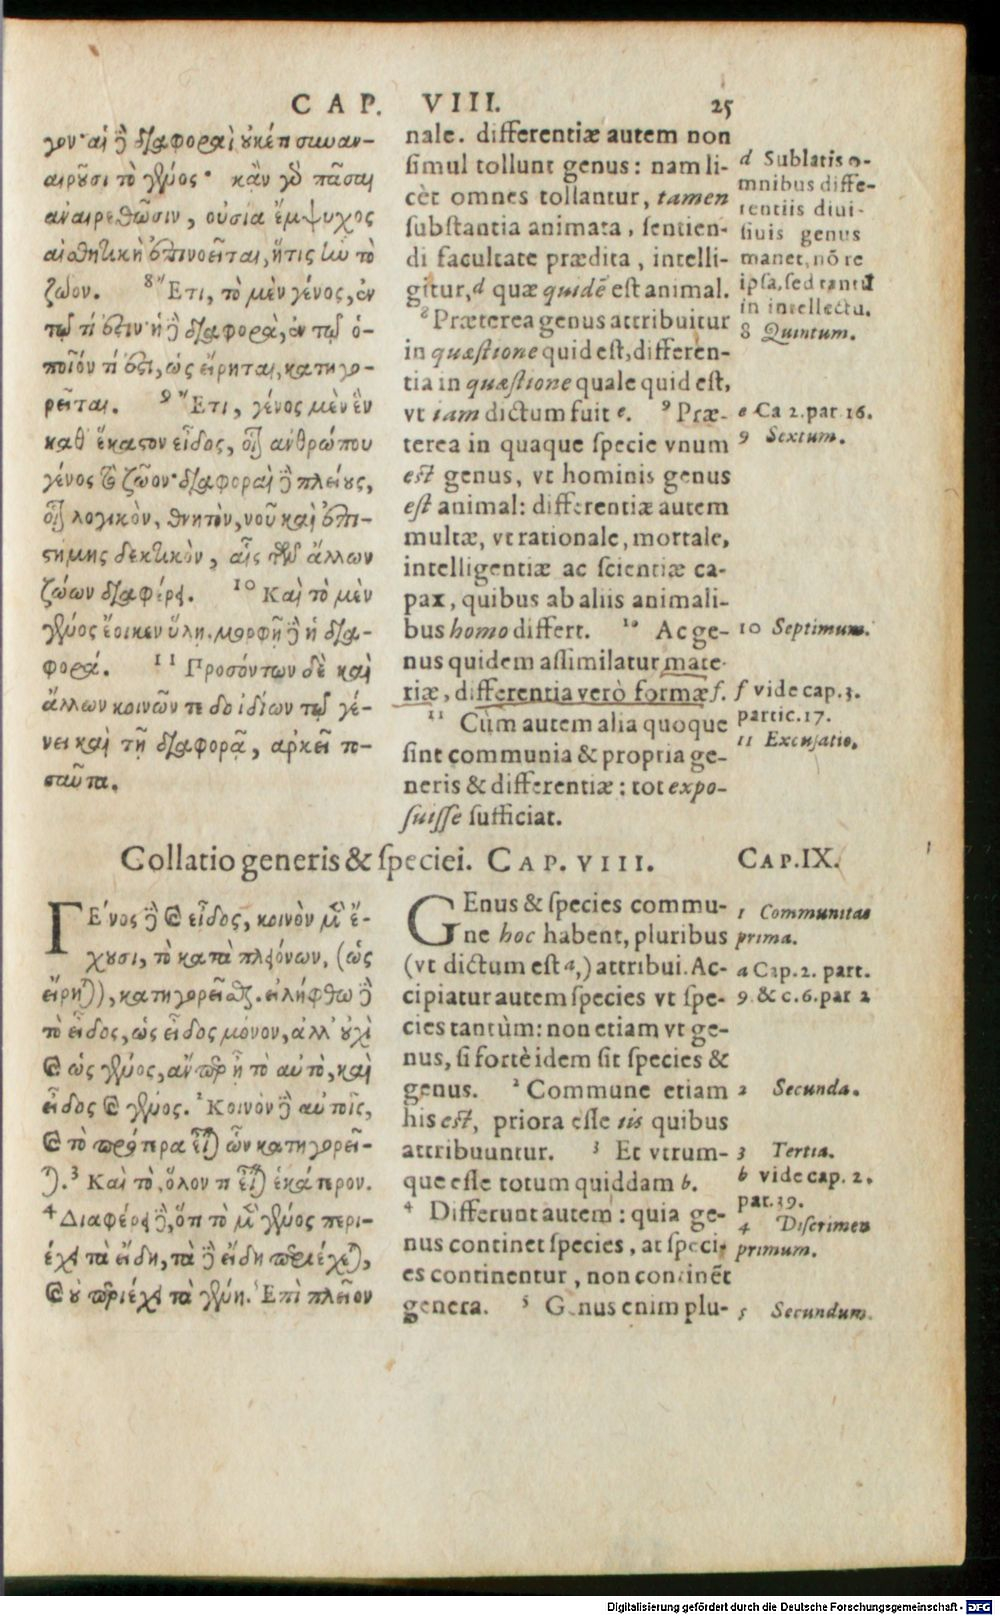 CAP. VIII. 25
γον· αἱ δὲ διαφοραὶ οὐκέτι συναν-
αιροῦσι τὸ γένος· κἂν γὰρ πᾶσαι
ἀναιρεθῶσιν, οὐσία ἔμψυχος
αἰσθητικὴ ἐπινοεῖται, ἥτις ἦν τὸ
ζῶον. 8 Ἔτι, τὸ μὲν γένος, ἐν
τῷ τί ἐστιν· ἡ δὲ διαφορὰ, ἐν τῷ ὁ-
ποῖόν τί ἐστι, ὡς εἴρηται, κατηγο-
ρεῖται. 9 Ἔτι, γένος μὲν ἓν
καθ' ἕκαστον εἶδος, οἷον ἀνθρώπου
γένος τὸ ζῶον· διαφοραὶ δὲ πλείους,
οἷον λογικὸν, θνητὸν, νοῦ καὶ ἐπι-
στήμης δεκτικὸν, αἷς τῶν ἄλλων
ζώων διαφέρει. 10 Καὶ τὸ μὲν
γένος ἔοικεν ὕλῃ. μορφῇ δὲ ἡ δια-
φορά. 11 Προσόντων δὲ καὶ
ἄλλων κοινῶν τε ἰδίων τῷ γέ-
νει καὶ τῇ διαφορᾷ, ἀρκεῖ το-
σαῦτα.
nale. differentiæ autem non
simul tollunt genus: nam li-
cèt omnes tollantur, tamen
substantia animata, sentien-
di facultate prædita, intelli-
gitur,d quæ quidē est animal.
8 Præterea genus attribuitur
in quæstione quid est, differen-
tia in quæstione quale quid est,
vt iam dictum fuit e. 9 Præ-
terea in quaque specie vnum
est genus, vt hominis genus
est animal: differentiæ autem
multæ, vt rationale, mortale,
intelligentiæ ac scientiæ ca-
pax, quibus ab aliis animali-
bus homo differt. 10 Ac ge-
nus quidem assimilatur mate-
riæ, differentia verò formæ f.
11 Cùm autem alia quoque
sint communia & propria ge-
neris & differentiæ: tot expo-
suisse sufficiat.
d Sublatis o-
mnibus diffe-
rentiis diui-
siuis genus
manet, nō re
ipsa, sed tantū
in intellectu.
8 Quintum.
e Ca 2. par 16.
9 Sextum.
10 Septimum.
f vide cap. 3.
partic. 17.
11 Excusatio.
Collatio generis & speciei. CAP. VIII. CAP. IX.
ΓΕνος δὲ καὶ εἶδος, κοινὸν μὲν ἔ-
χουσι, τὸ κατὰ πλειόνων, (ὡς
εἴρηται), κατηγορεῖσθαι. εἰλήφθω δὲ
τὸ εἶδος, ὡς εἶδος μόνον, ἀλλ' οὐχὶ
καὶ ὡς γένος, ἄνπερ ᾖ τὸ αὐτὸ, καὶ
εἶδος καὶ γένος. 2 Κοινὸν δὲ αὐτοῖς,
καὶ τὸ πρότερα εἶναι ὧν κατηγορεῖ-
ται. 3 Καὶ τὸ, ὅλον τι εἶναι ἑκάτερον.
4 Διαφέρει δὲ, ὅτι τὸ μὲν γένος περι-
έχει τὰ εἴδη, τὰ δὲ εἴδη περιέχεται,
καὶ οὐ περιέχει τὰ γένη. Ἐπὶ πλεῖον
GEnus & species commu-
ne hoc habent, pluribus
(vt dictum est a,) attribui. Ac-
cipiatur autem species vt spe-
cies tantùm: non etiam vt ge-
nus, si fortè idem sit species &
genus. 2 Commune etiam
his est, priora esse iis quibus
attribuuntur. 3 Et vtrum-
que esse totum quiddam b.
4 Differunt autem: quia ge-
nus continet species, at speci-
es continentur, non continēt
genera. 5 Genus enim plu-
1 Communitas
prima.
a Cap. 2. part.
9. & c. 6. par 2
2 Secunda.
3 Tertia.
b vide cap. 2.
par. 39.
4 Discrimen
primum.
5 Secundum.
Digitalisierung gefördert durch die Deutsche Forschungsgemeinschaft - DFG